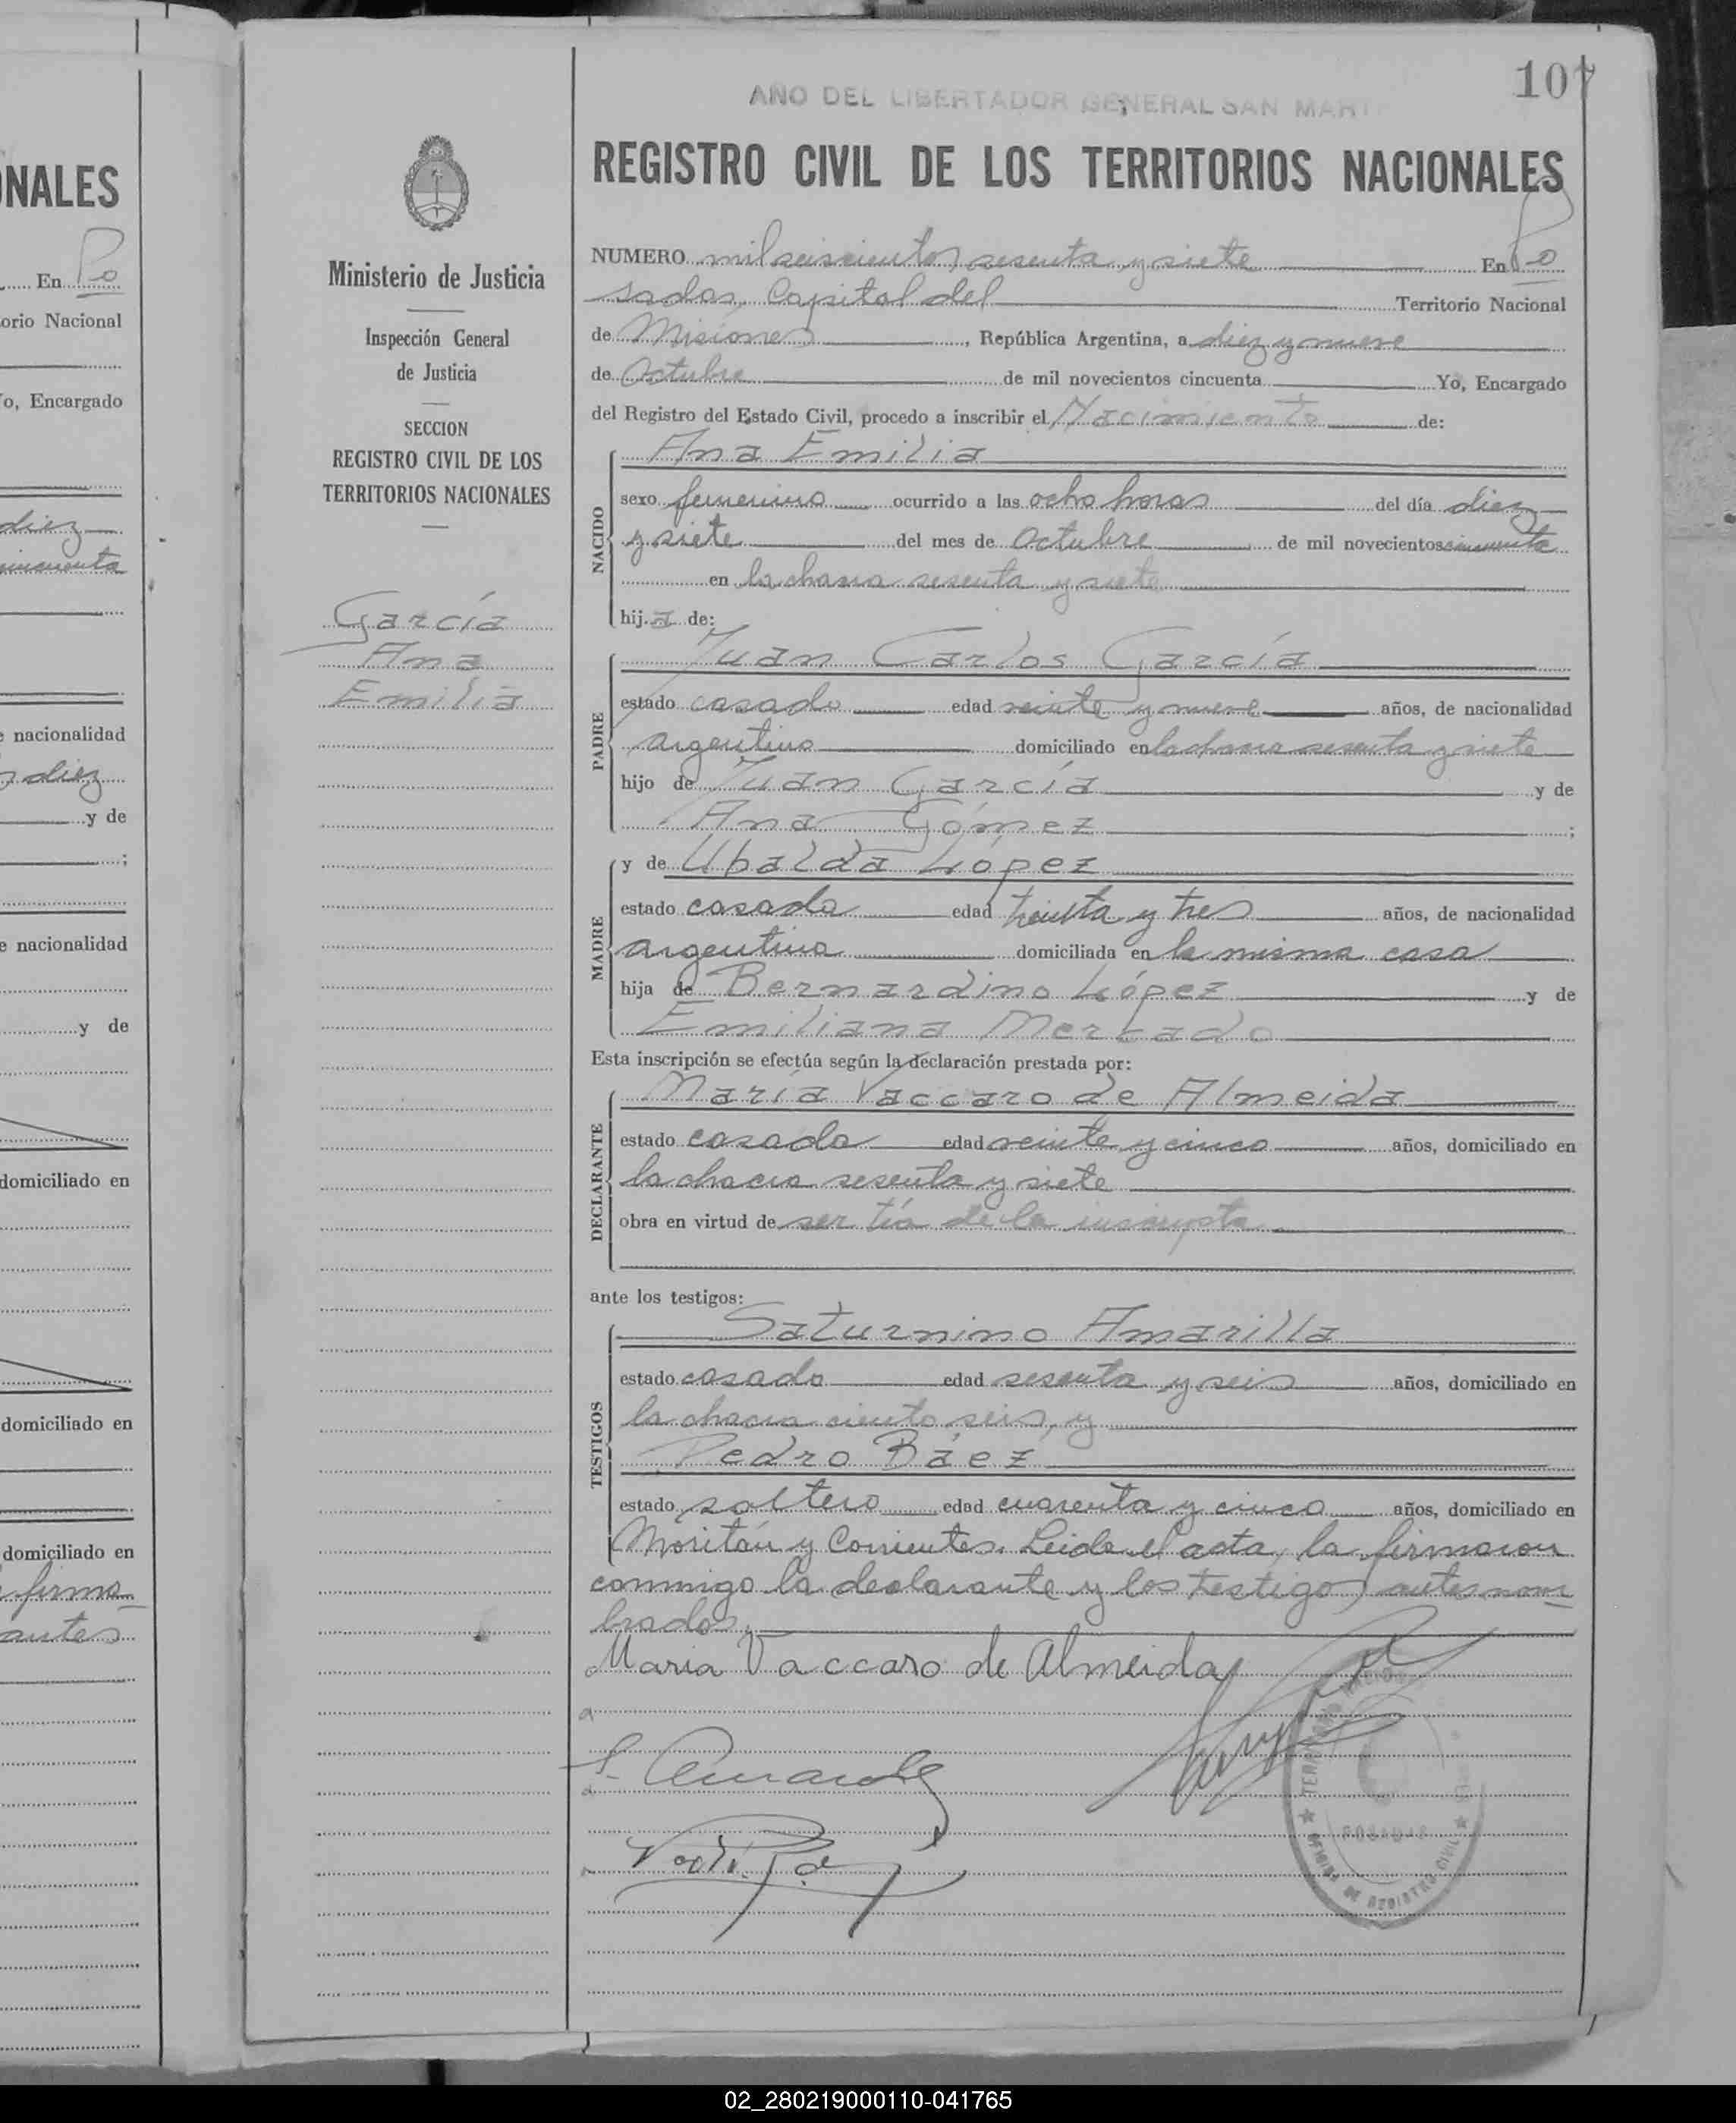 107
AÑO DEL LIBERTADOR GENERAL SAN MARTI
REGISTRO CIVIL DE LOS TERRITORIOS NACIONALES
ONALES
En Po
orio Nacional
o, Encargado
diez
cincuenta
e nacionalidad
diez
y de
e nacionalidad
y de
domiciliado en
domiciliado en
domiciliado en
firma
antes
Ministerio de Justicia
Inspección General
de Justicia
SECCION
REGISTRO CIVIL DE LOS
TERRITORIOS NACIONALES
García
Ana
Emilia
NUMERO mil seiscientos sesenta y siete En Po
sadas, Capital del Territorio Nacional
de Misiones, República Argentina, a diez y nueve
de Octubre de mil novecientos cincuenta Yo, Encargado
del Registro del Estado Civil, procedo a inscribir el Nacimiento de:
NACIDO
Ana Emilia
sexo femenino ocurrido a las ocho horas del día diez
y siete del mes de Octubre de mil novecientos cincuenta
en la chacra sesenta y siete
hija de:
PADRE
Juan Carlos García
estado casado edad veinte y nueve años, de nacionalidad
argentino domiciliado en la chacra sesenta y siete
hijo de Juan García y de
Ana Gómez;
MADRE
y de Ubalda López
estado casada edad treinta y tres años, de nacionalidad
argentina domiciliada en la misma casa
hija de Bernardino López y de
Emiliana Mercado
Esta inscripción se efectúa según la declaración prestada por:
DECLARANTE
María Vaccaro de Almeida
estado casada edad veinte y cinco años, domiciliado en
la chacra sesenta y siete
obra en virtud de ser tía de la inscripta
ante los testigos:
TESTIGOS
Saturnino Amarilla
estado casado edad sesenta y seis años, domiciliado en
la chacra ciento seis, y
Pedro Báez
estado soltero edad cuarenta y cinco años, domiciliado en
Moritán y Corrientes. Leida el acta, la firmaron
conmigo la declarante y los testigos antes nom
brados.
Maria Vaccaro de Almeida
TERRITORIO NACIONAL
POSADAS
OFICINA DE REGISTRO CIVIL
02_280219000110-041765